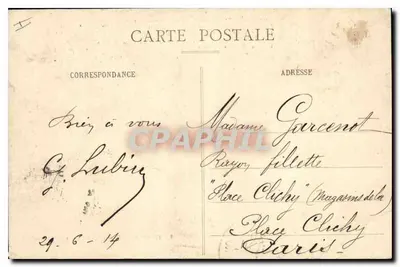 CARTE POSTALE
CORRESPONDANCE
ADRESSE
Bien à vous
G Lubin
29-6-14
Madame Garcenot
Rayon fillette
"Place Clichy" (Magasins de la
Place Clichy
Paris
CPAPHIL.COM